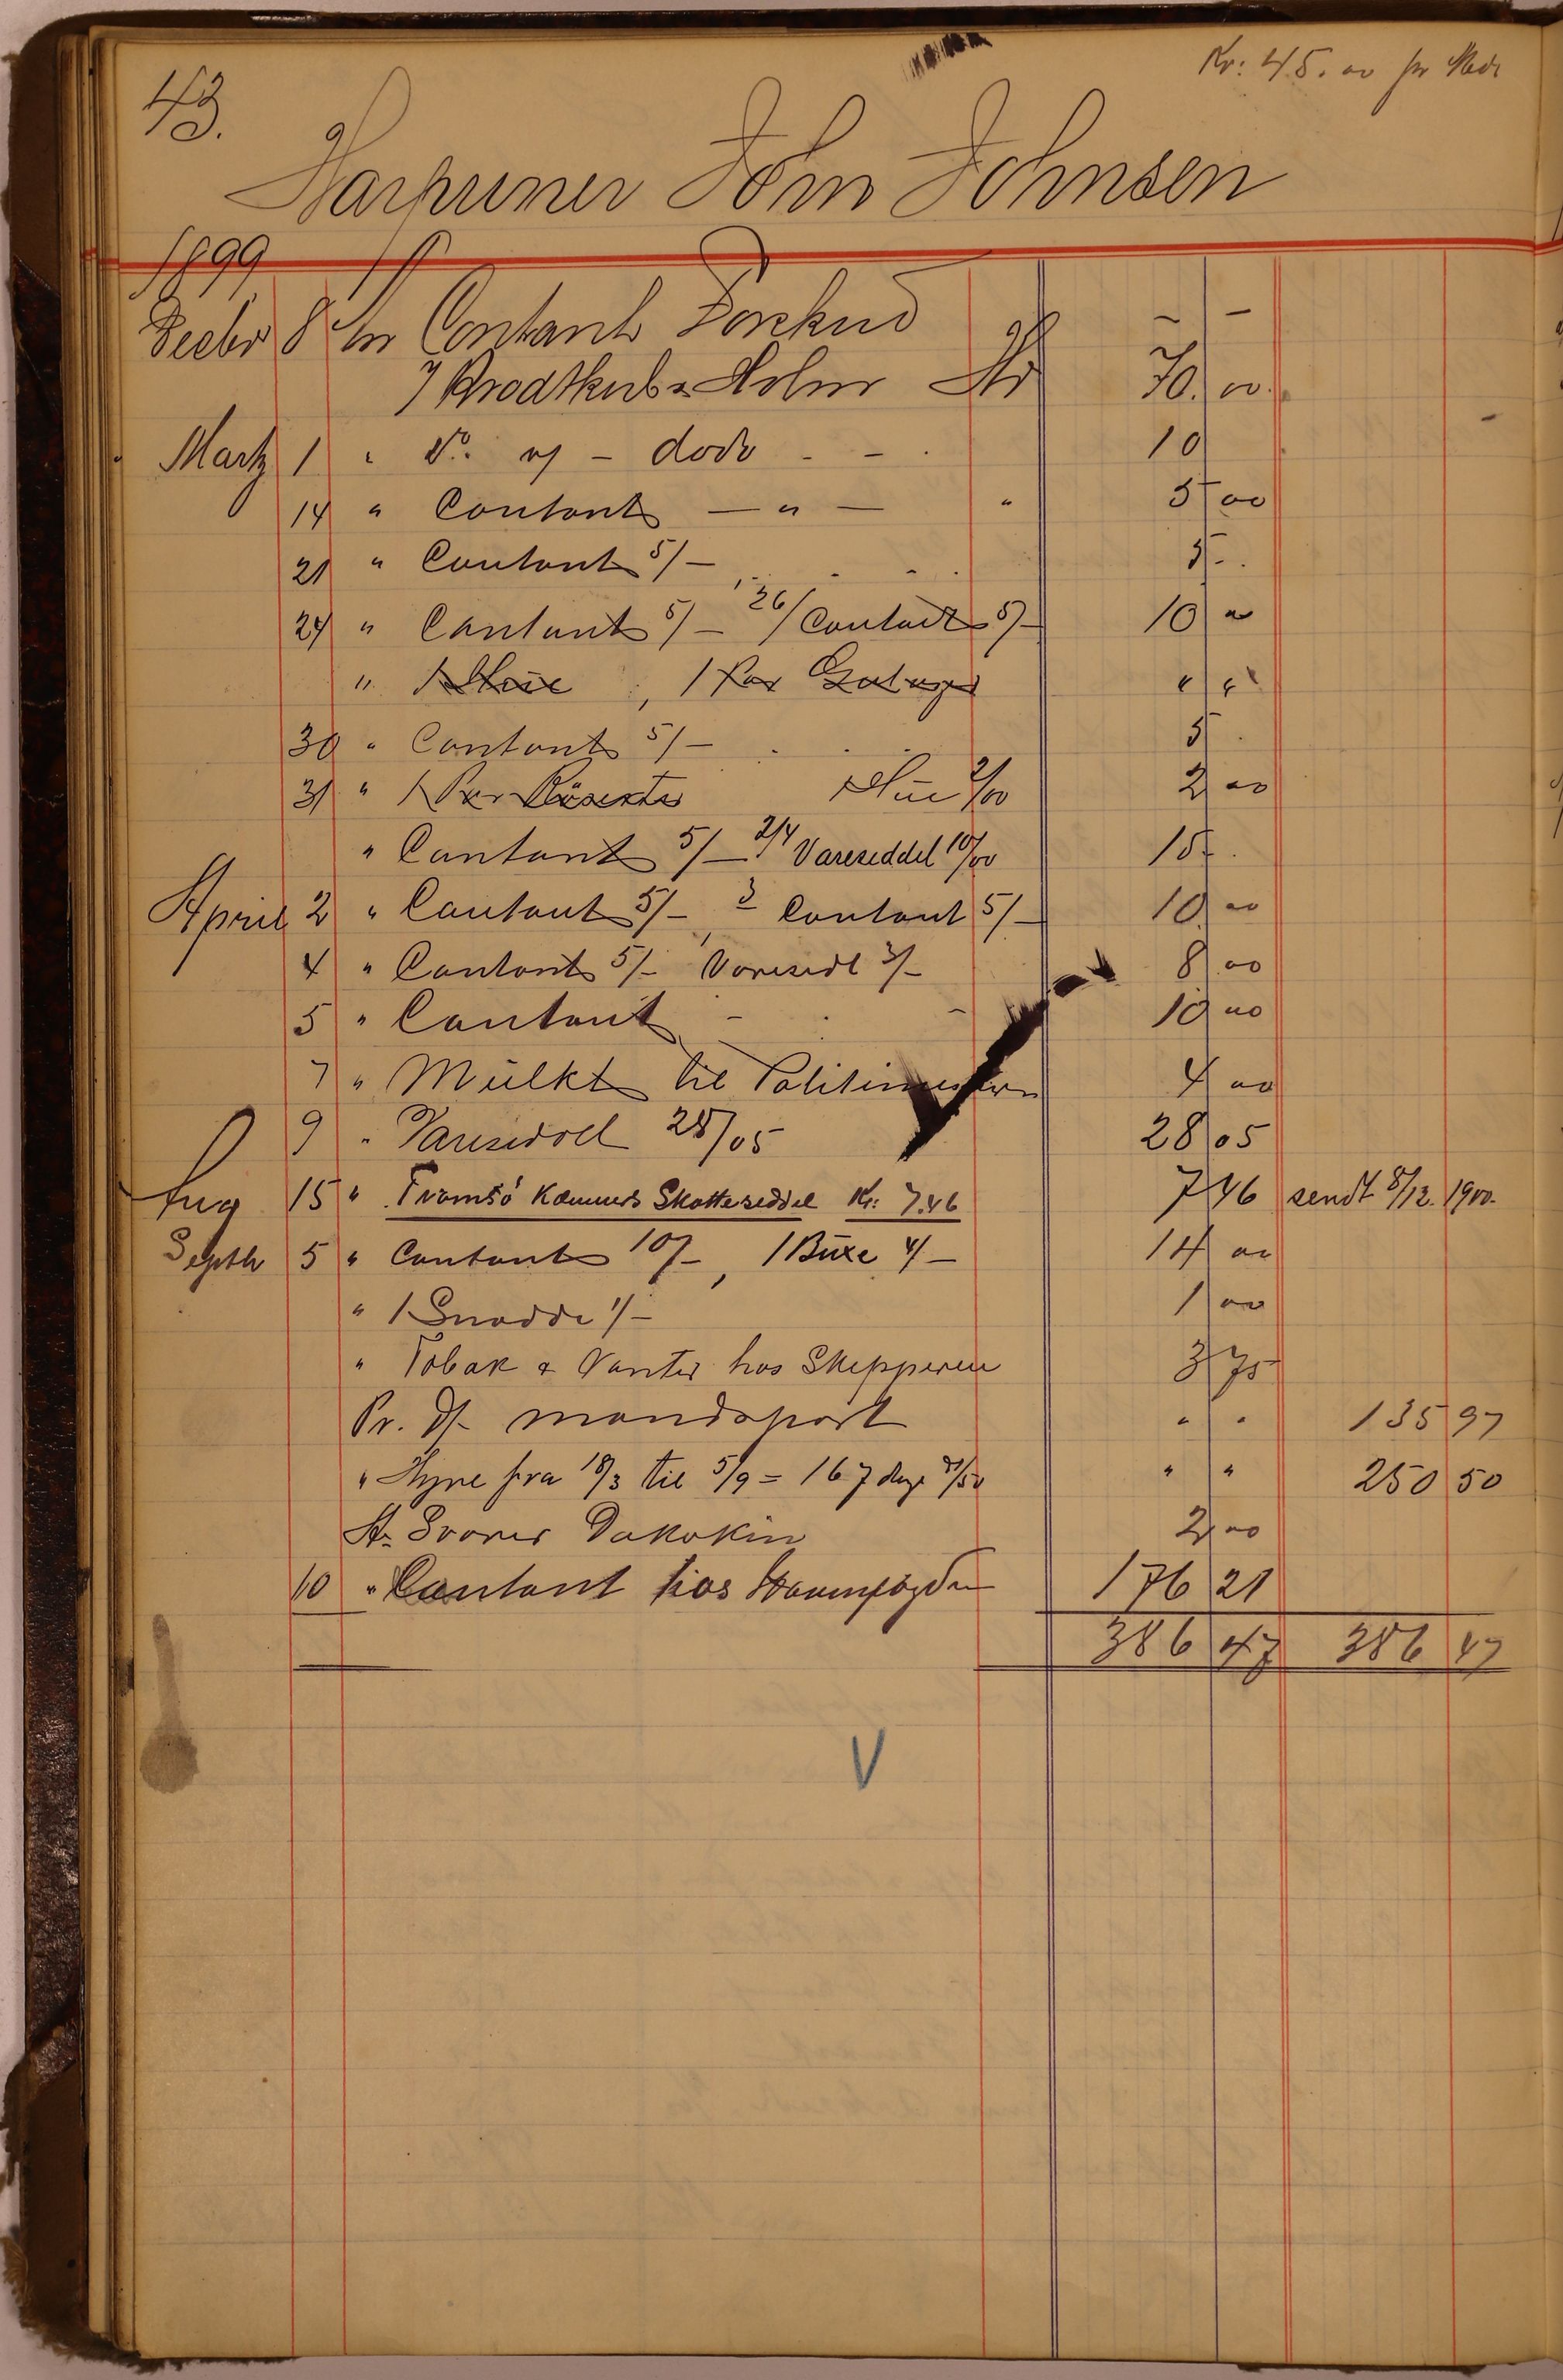 Kr: 45.00 pr Md
43.
Harpuner John Johnsen
1899
Decbr 8 Pr Contant Forskud – –
Brodtkorb & Holm Kr 70.00
Martz 1 " Do. af – dodo - - . 10
14 " Contant — " — " 5 00
21 " Contant 5/– 5 -
24 " Contant 5/– 26/ Contant 5/– 10 00
" 1 Hue, 1 Par " "
30 " Contant 5/– 5
31 " 1 Par Hue 2/00 2 00
" Contant 5/– 2/4 Vareseddel 10/00 15 -
April 2 " Contant 5/–, 3 Contant 5/– 10.00
4 " Contant 5/– Varesedl 3/– 8 00
5 " Contant - - 10 00
7 " Mulkt til Politimesteren 4 00
9 " Varesedel 28/05 28 05
Aug 15 " Tromsö Kæmners Skatteseddel Kr: 7.46 7 46 sendt 8/12. 1900.
Septb 5 " Contant 10/–, 1 Buxe 4/– 14 00
" 1 Snadde 1/– 1 00
" Tobak & Vanter hos Skipperen 3 75
Pr. D/- mandspart " " 135 97
" Hyre fra 18/3 til 5/9 = 167 dage /50 " " 250 50
2 00
10 " Contant hos Havnefogden 176 21
386 47 386 47
V